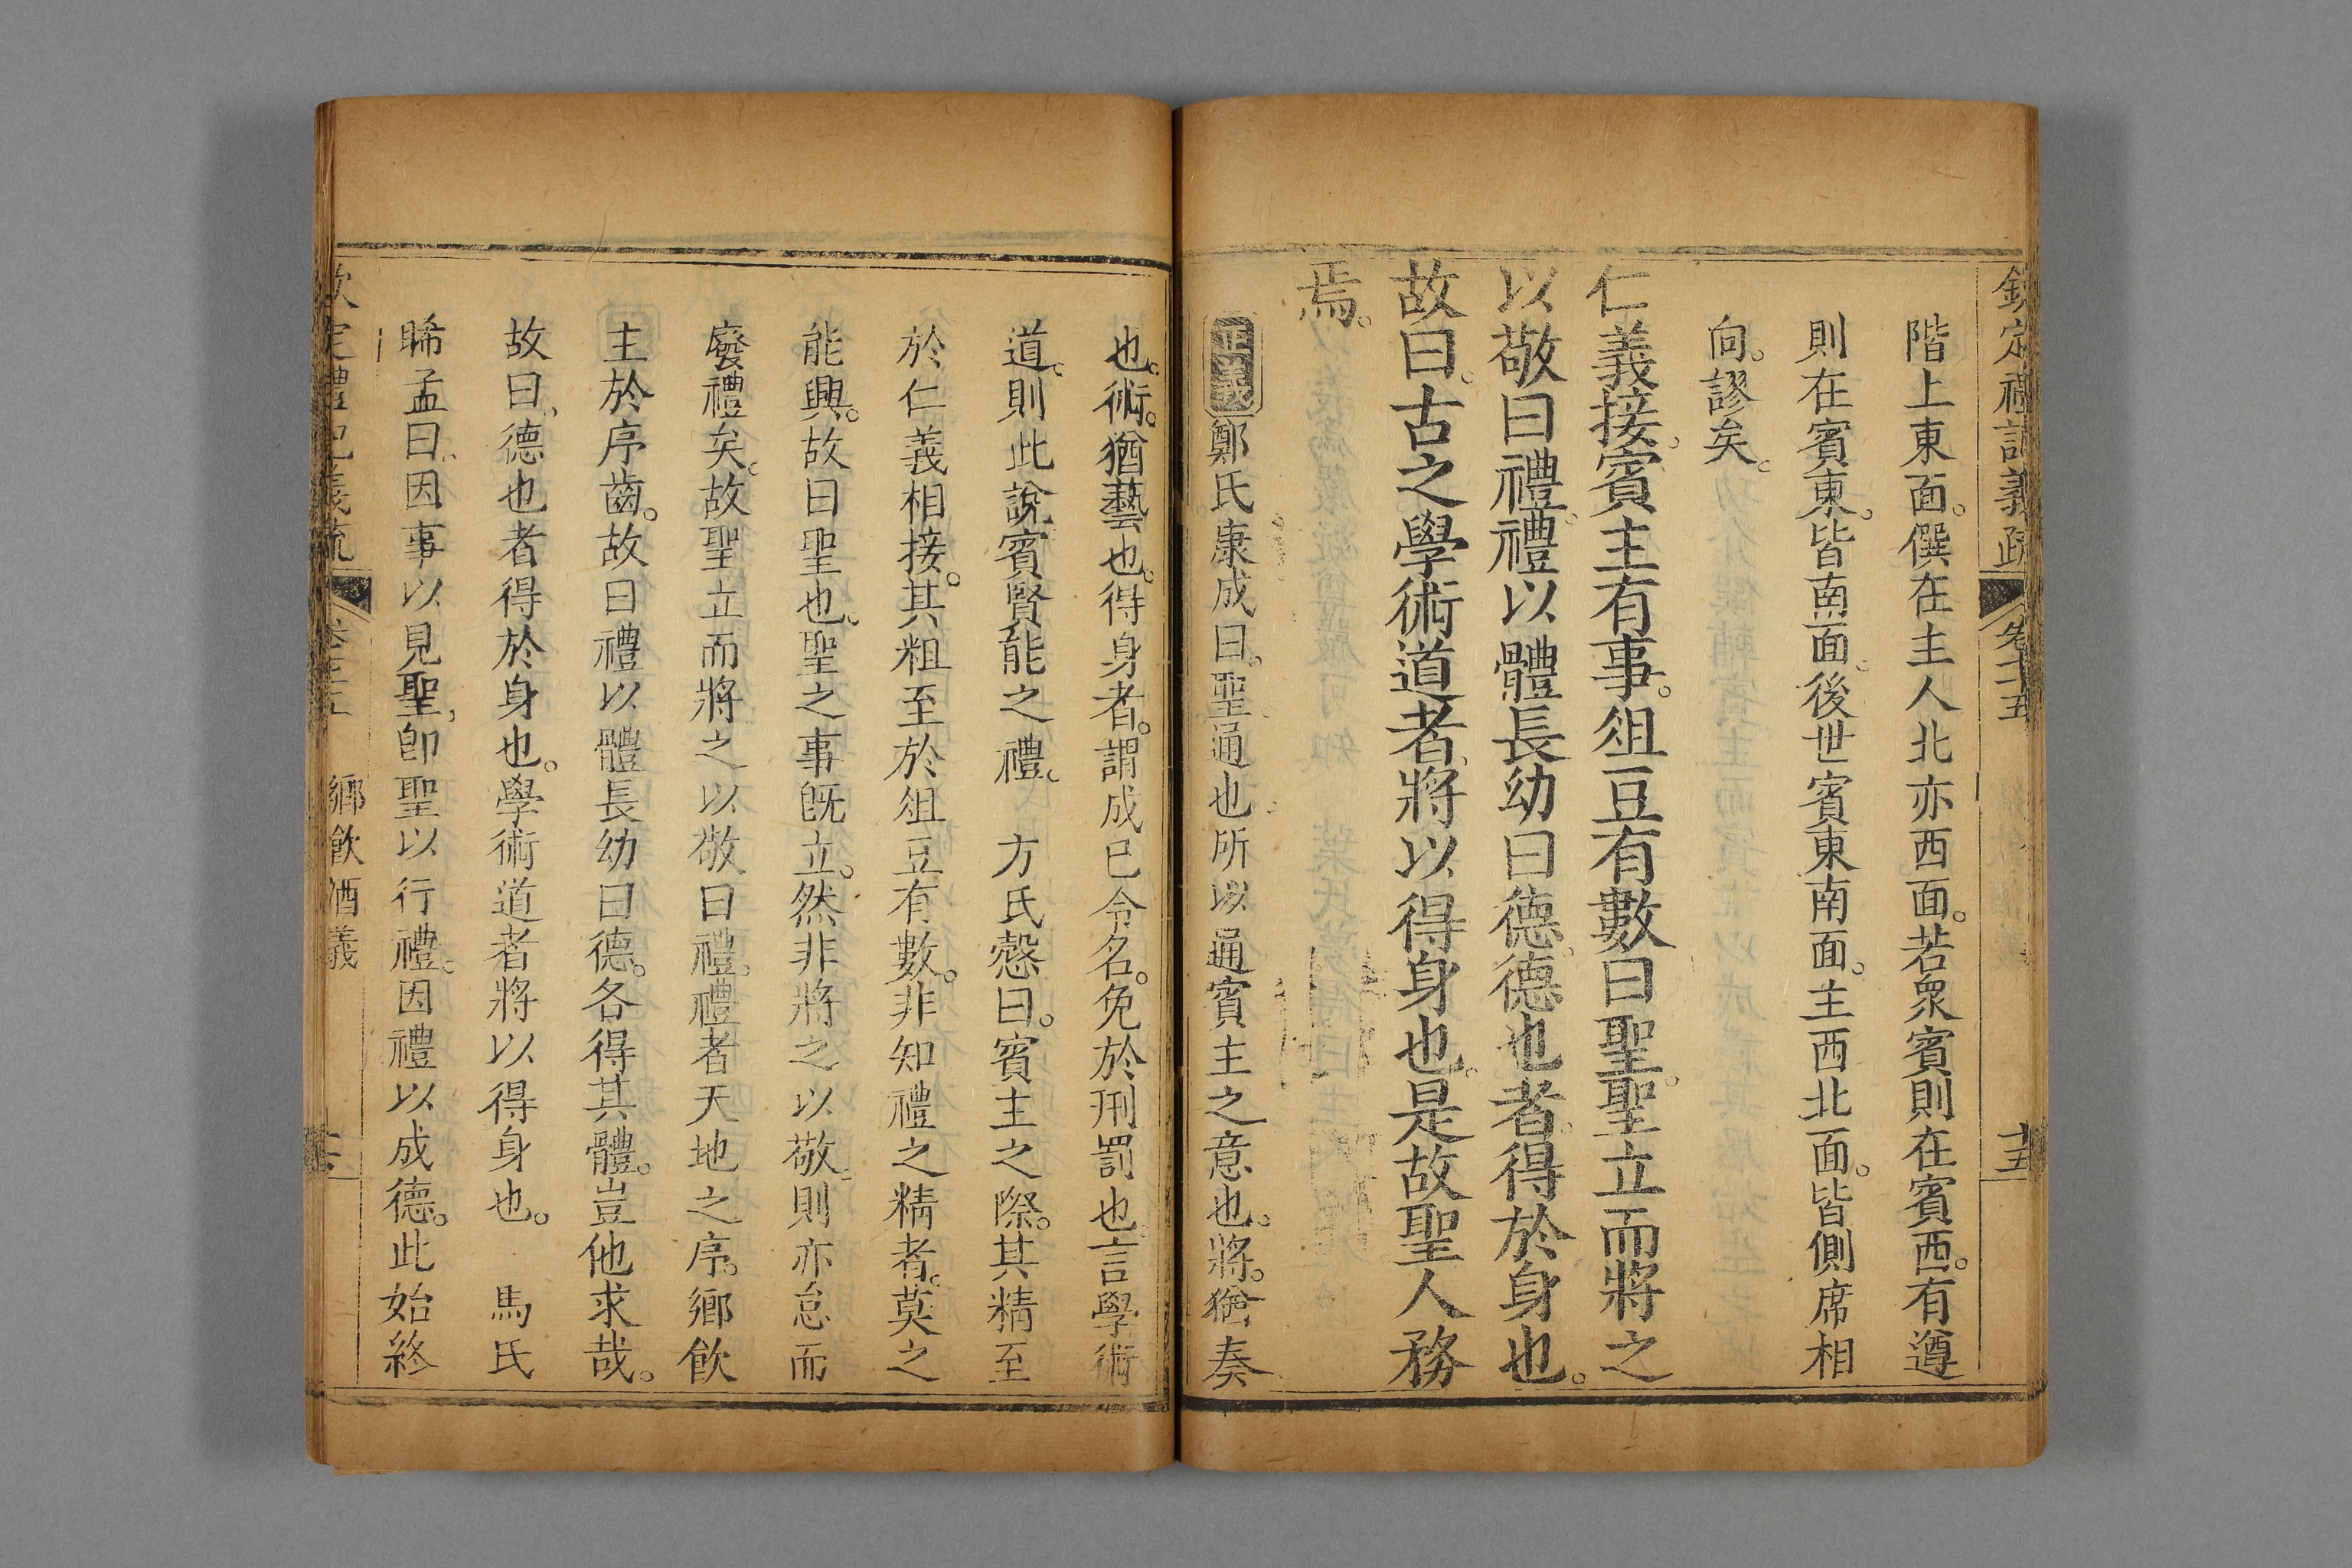 欽定禮記義疏
階上東面。僎在主人北亦西面。若衆賓則在賓西。有遵
則在賓東。皆南面。後世賓東南面。主西北面。皆側席相
向。謬矣。
仁義接。賓主有事。俎豆有數曰聖。聖立而將之
以敬曰禮。禮以體長幼曰德。德也者。得於身也。
故曰。古之學術道者。將以得身也。是故聖人務
焉。
正義鄭氏康成曰。聖通也所以通賓主之意也。將。猶奏
也。術。猶藝也。得身者。謂成已令名。免於刑罰也。言學術
道。則此說賓賢能之禮。 方氏慤曰。賓主之際。其精至
於仁義相接。其粗至於俎豆有數。非知禮之精者。莫之
能興。故曰聖也。聖之事旣立。然非將之以敬。則亦怠而
廢禮矣。故聖立而將之以敬曰禮。禮者天地之序。鄉飲
主於序齒。故曰禮以體長幼曰德。各得其體。豈他求哉。
故曰。德也者得於身也。學術道者將以得身也。 馬氏
睎孟曰。因事以見聖。卽聖以行禮。因禮以成德。此始終
定禮記義疏 鄉飲酒義